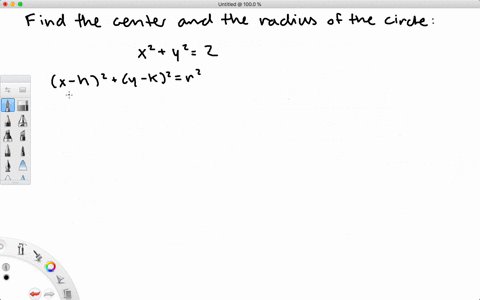 Untitled @ 100.0 %
Find the center and the radius of the circle:
x² + y² = 2
(x-h)² + (y-k)² = r²